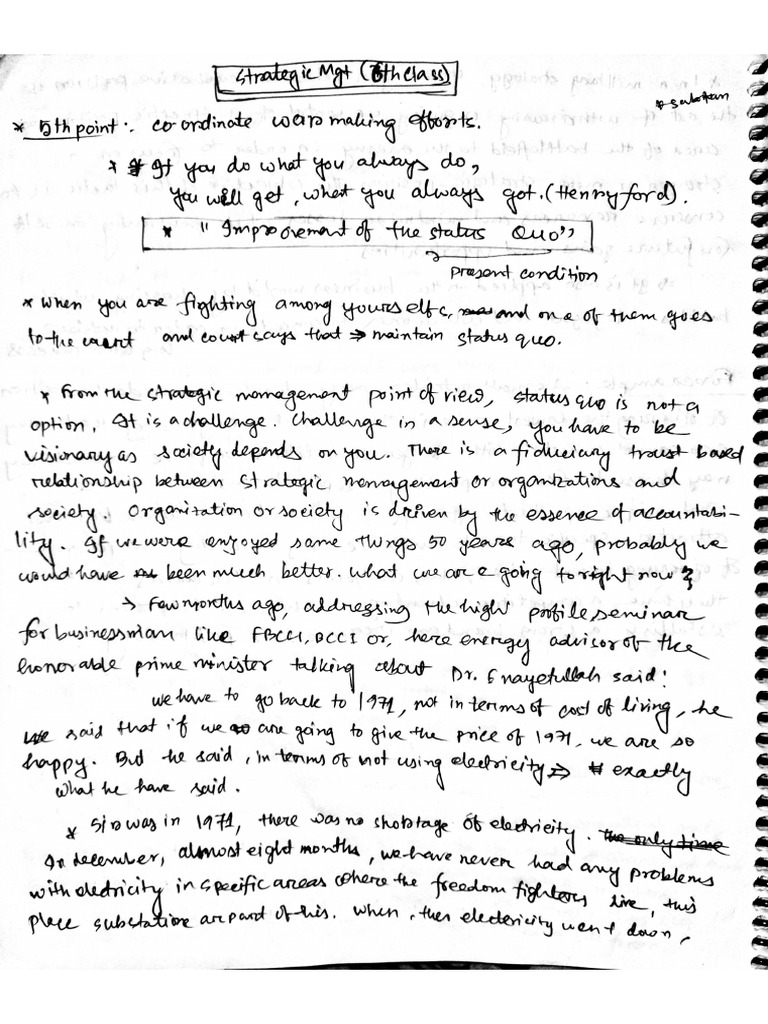 Strategic Mgt (6th class)
* substan
* 5th point :- co-ordinate war making efforts.
* If you do what you always do,
you will get, what you always got. (Henry ford).
* "Improvement of the status Quo"
present condition
* When you are fighting among yourselfs, and one of them goes
to the court and court says that → maintain status quo.
* From the strategic management point of view, status quo is not a
option. It is a challenge. Challenge in a sense, you have to be
visionary as society depends on you. There is a fiduciary trust based
relationship between strategic management or organizations and
society. Organization or society is driven by the essence of accountabi-
lity. If we were enjoyed same things 50 years ago, probably we
would have been much better. What we are going to right now?
→ Few months ago, addressing the high profile, seminar
for businessman like FBCCI, DCCI or, here energy advisor of the
honorable prime minister talking about Dr. Enayetullah said!
we have to go back to 1971, not in terms of cost of living, he
said that if we are going to give the price of 1971, we are so
happy. But he said, in terms of not using electricity → exactly
what he have said.
* Sir was in 1971, there was no shortage of electricity. the only time
In december, almost eight months, we have never had any problems
with electricity in specific areas where the freedom fighters live, this
place substation are part of this. When, then electricity went down,